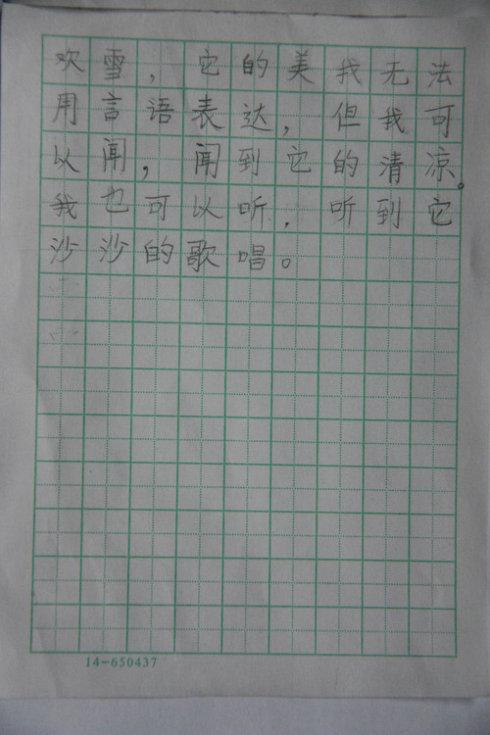 欢雪，它的美我无法
用言语表达，但我可
以闻，闻到它的清凉。
我也可以听，听到它
沙沙的歌唱。
14-650437